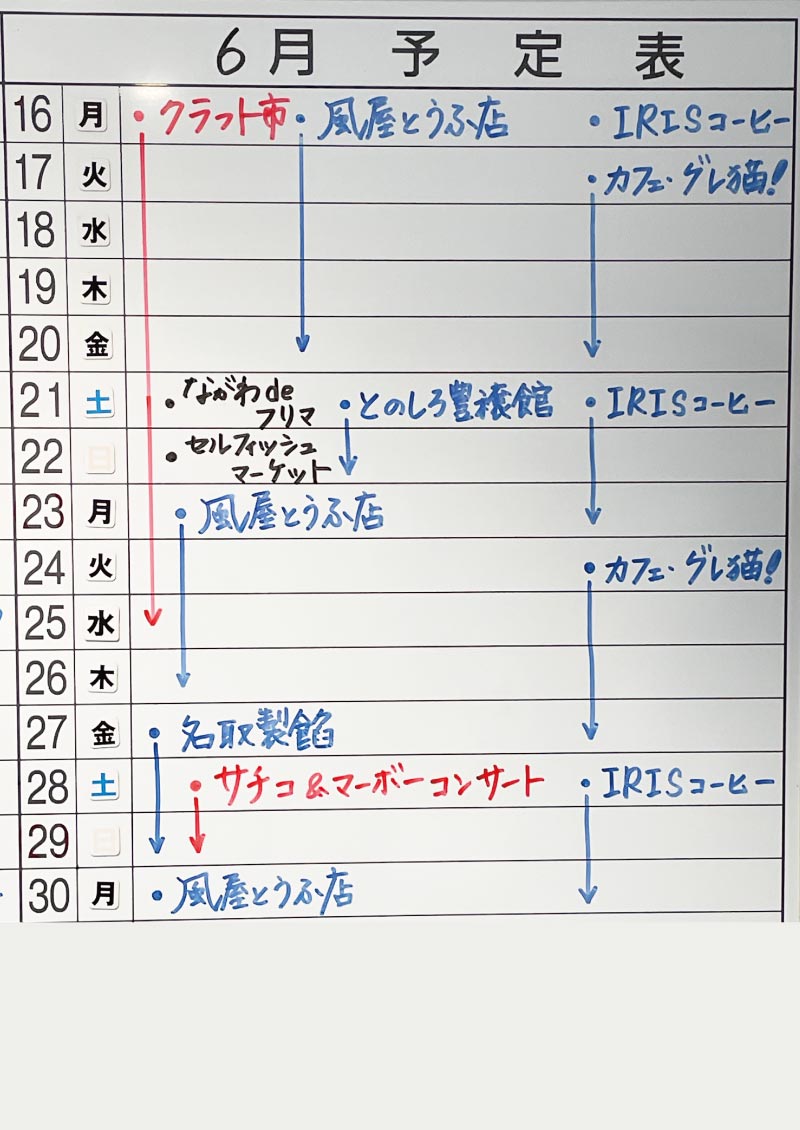 6月 予定表
16 月 ・クラット市 ・風屋とうふ店 ・IRISコーヒー
17 火 ・カフェ・グレ猫!
18 水
19 木
20 金
21 土 ・ながわde ・とのしろ豊穣館 ・IRISコーヒー
フリマ
22 日 ・セルフィッシュ
マーケット
23 月 ・風屋とうふ店
24 火 ・カフェ・グレ猫!
25 水
26 木
27 金 ・名取製餡
28 土 ・サチコ&マーボーコンサート ・IRISコーヒー
29 日
30 月 ・風屋とうふ店